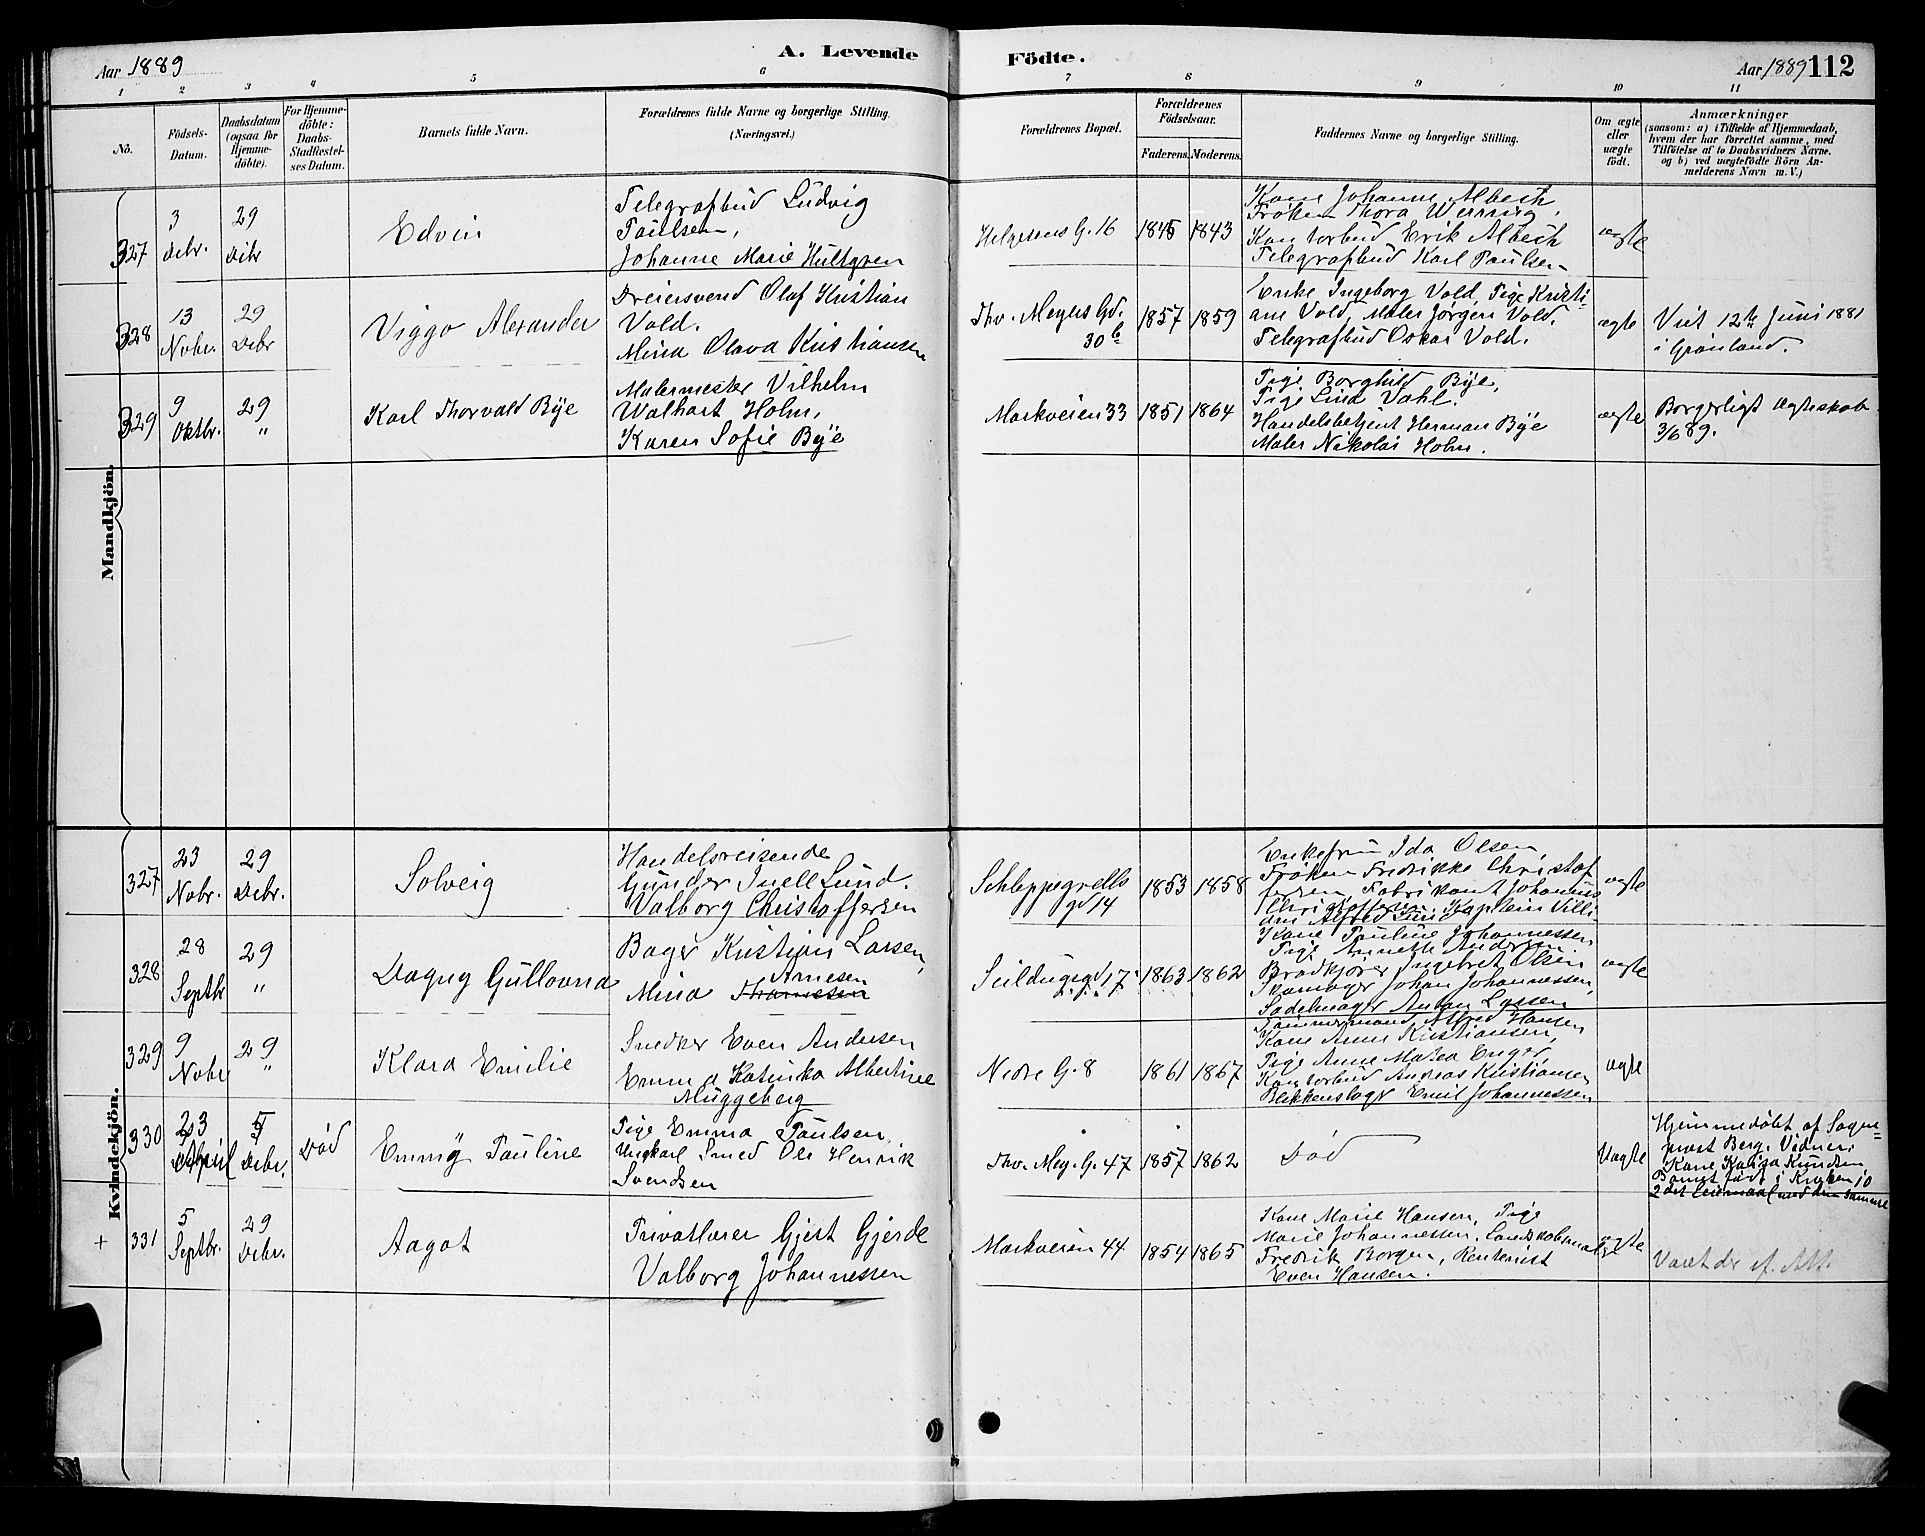 Aar 1889
A. Levende
Födte.
Aar 1889 112
1 2 3 4 5 6 7 8 9 10 11
No.
Födsels-
Datum.
Daabsdatum
(ogsaa for
Hjemme-
döbte).
For Hjemme-
döbte:
Daabs-
Stadfæstel-
ses Datum.
Barnets fulde Navn.
Forældrenes fulde Navne og borgerlige Stilling.
(Næringsvei.)
Forældrenes Bopæl.
Forældrenes
Födselsaar.
Faderens. Moderens.
Faddernes Navne og borgerlige Stilling.
Om ægte
eller
uægte
födt.
Anmærkninger
(saasom: a) i Tilfælde af Hjemmedaab,
hvem der har forrettet samme, med
Tilföielse af to Daabsvidners Navne,
og b) ved uægtefödte Börn An-
melderens Navn m. V.)
Mandkjön.
327
3
Debr.
29
Debr
Edvin
Telegrafbud Ludvig
Paulsen,
Johanne Marie Hultgren
Helgesens G. 16
1845 1843
Kone Johanne Albech
Frøken Thora Werring,
Kontorbud Erik Albech
Telegrafbud Karl Paulsen
ægte
328
13
Nobr.
29
Debr
Viggo Alexander
Dreiersvend Olaf Kristian
Vold.
Mina Olava Kristiansen
Thv. Meyers Gd.
30 b
1857 1859
Enke Ingeborg Vold, Pige Kristi-
ane Vold, Maler Jørgen Vold.
Telegrafbud Oskar Vold.
ægte
Viet 12te Juni 1881
i Grønland.
329
9
Oktbr.
29
"
Karl Thorvald Bye
Malermester Vilhelm
Walhart Holm,
Karen Sofie Bye
Markveien 33
1851 1864
Pige Borghild Bye,
Pige Lina Vahl.
Handelsbetjent Herman Bye
Maler Nikolai Holm.
ægte
Borgerligt Ægteskab
3/6 89.
Kvindekjön.
327
23
Nobr.
29
Debr.
Solveig
Handelsreisende
Gunder Juell Lund.
Valborg Christoffersen
Schleppegrells
gd 14
1853 1858
Enkefru Ida Olsen,
Frøken Fredrikke Christof
fersen, Fabrikant Johannes
Christoffersen, Kaptein Villi
am Alfred Lund
ægte
328
28
Septbr
29
"
Dagny Gullovna
Bager Kristian Larsen,
Arnesen
Mina Thoresen
Seildugsgd 17
1863 1862
Kone Pauline Johannessen
Pige Annette Andersen
Brødkjører Ingebret Olsen
Skomager Johan Johannessen,
Sadelmager Anton Larsen
ægte
329
9
Nobr
29
"
Klara Emilie
Snedker Even Andersen
Emma Katinka Albertine
Muggeberg
Nedre G. 8
1861 1867
Tømmermand Alfred Hansen
Kone Anne Kristiansen,
Pige Anne Matea Enger,
Kontorbud Andreas Kristiansen
Blikkenslager Emil Johannessen
ægte
330
23
April
5
Debr.
Død
Emmy Pauline
Pige Emma Paulsen,
Ungkarl Smed Ole Henrik
Svendsen
Thv. Mey. G. 47
1857 1862
Død
Uægte
Hjemmedøbt af Sogne-
prest Berg. Vidner:
Kone Kaisa Knudsen
Barnet født i Krogken 10
2det Leiermaal med den samme
+ 331
5
Septbr.
29
Debr.
Aagot
Privatlærer Gjert Gjerde
Valborg Johannessen
Markveien 44
1854 1865
Kone Marie Hansen, Pige
Marie Johannessen,
Fredrik Borgen, Kontorist
Even Hansen.
ægte